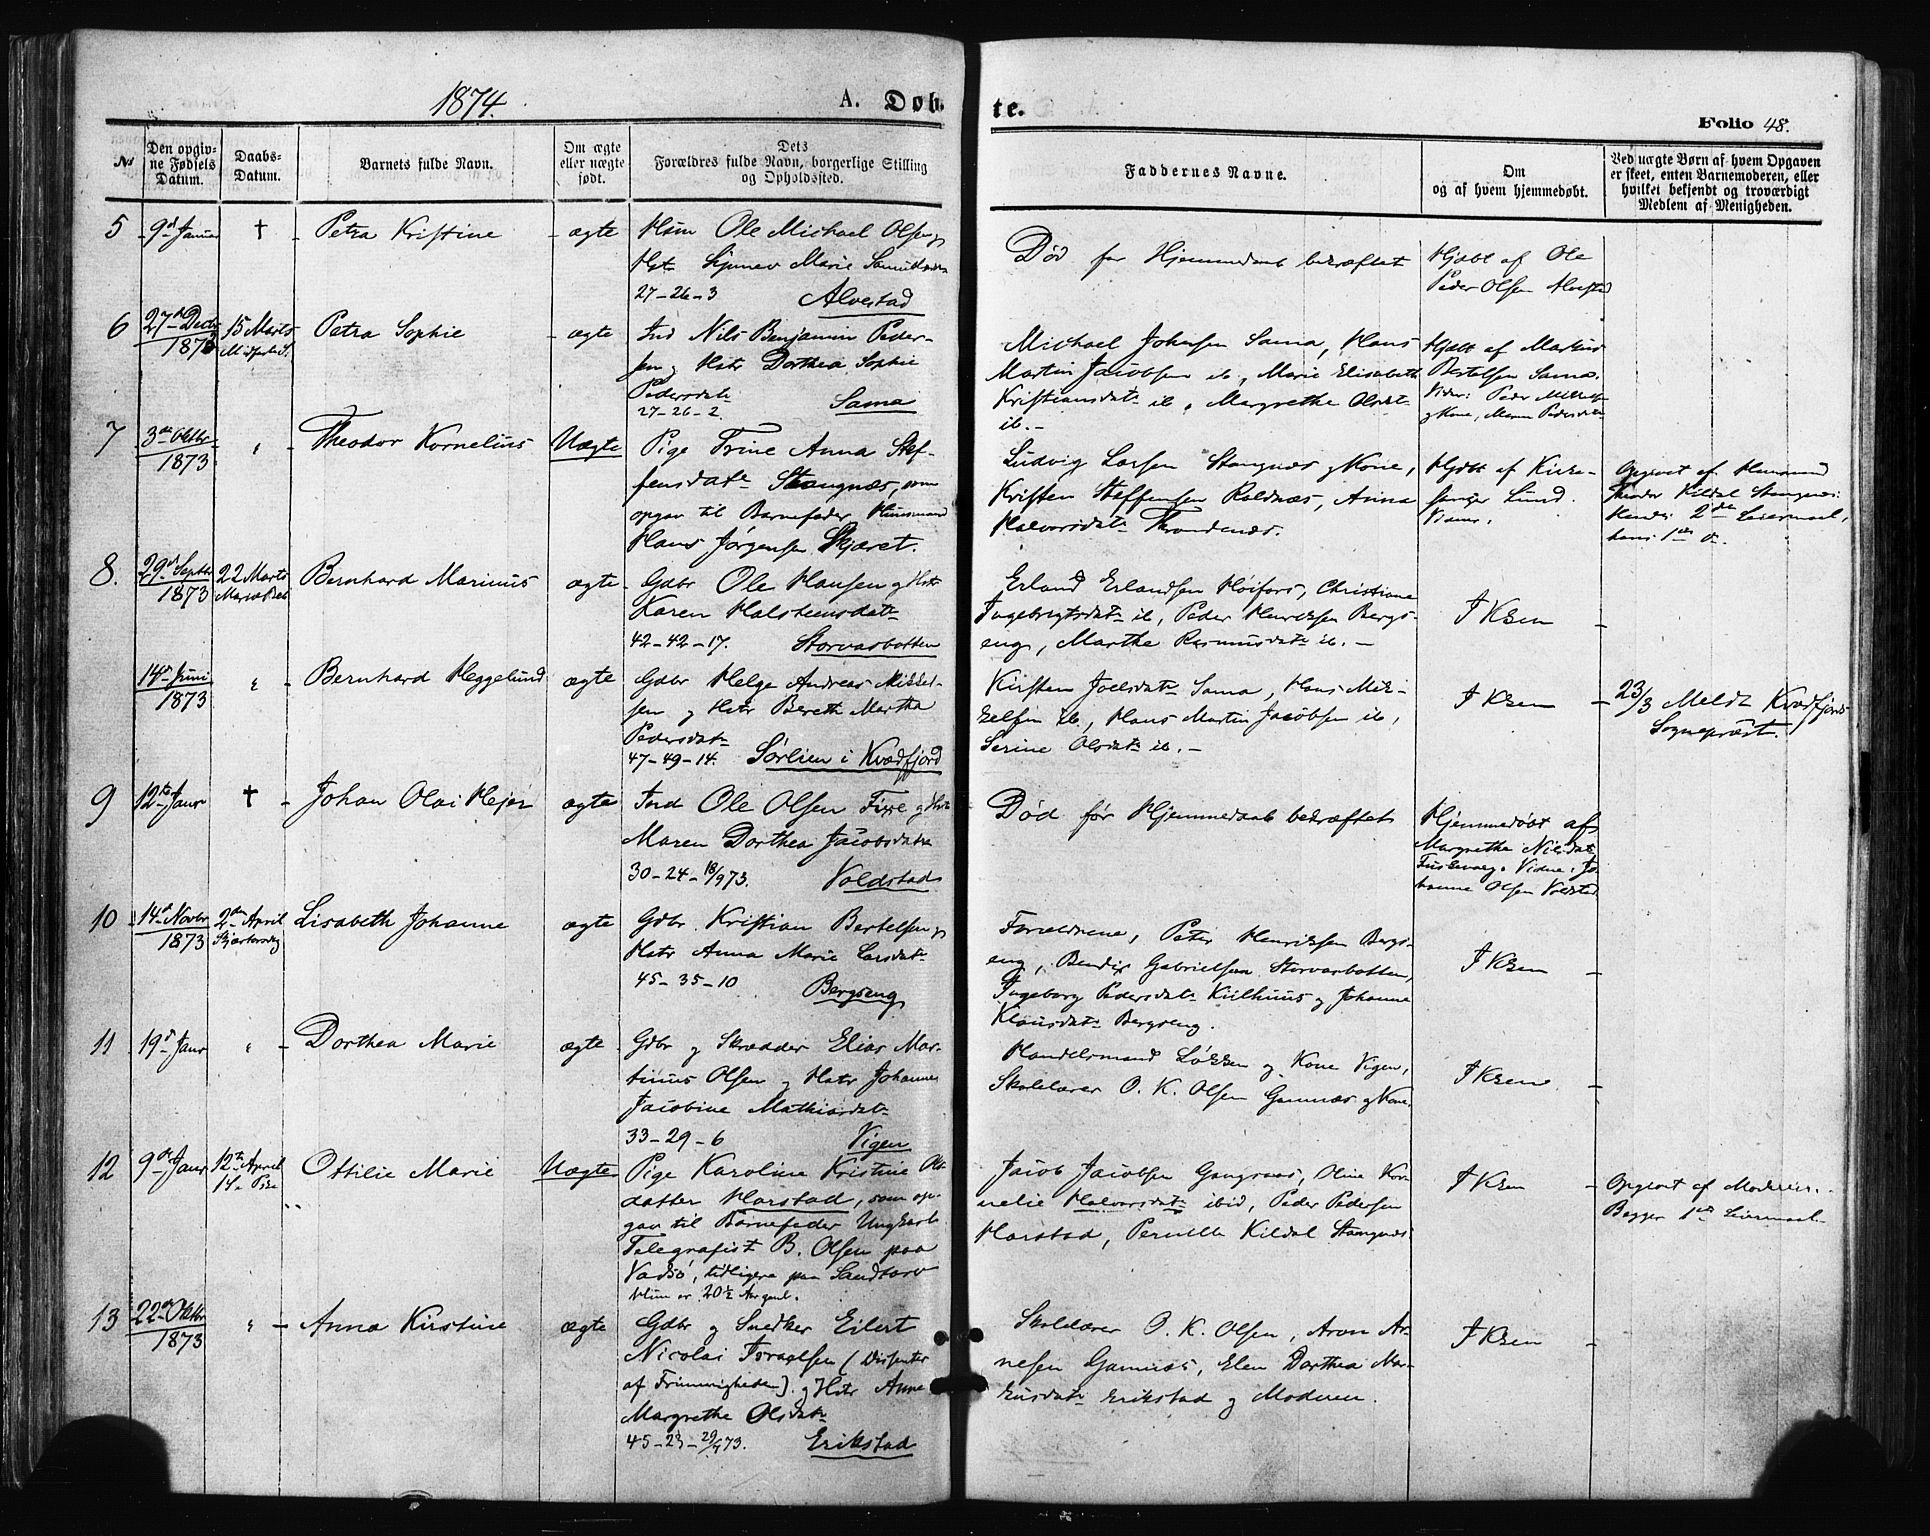 1874.
A. Døb-
te.
Folio 48.
No
Den opgiv-
ne Fødsels
Datum.
Daabs-
Datum.
Barnets fulde Navn.
Om ægte
eller uægte
født.
Dets
Forældres fulde Navn, borgerlige Stilling
og Opholdssted.
Faddernes Navne.
Om
og af hvem hjemmedøbt.
Ved uægte Børn af hvem Opgaven
er skeet, enten Barnemoderen, eller
hvilket bekjendt og troværdigt
Medlem af Menigheden.
5 9d Januar † Petra Kristine ægte Ole Michael Olsen og
Marie
27-26-3 Alvestad
Død før Hjemmedaab bekræftet
Hjdøbt af Ole
Peder Olsen Alvestad
6 27de Decbr 1873 15 Marts Petra Sophie ægte Ind Nils Benjamin Peder-
sen og Hstr Dorthea Sophie
Pedersdatr
27-26-2. Sama
Michael Johnsen Sama, Hans
Martin Jacobsen ib, Marie Elisabeth
Kristiansdatr ib, Margrethe Olsdatr
ib.-
Hjdøbt af Markus
Bertelsen Sama.
7 3die Oktbr 1873 " Theodor Kornelius Uægte Pige Trine Anna Stef-
fensdatr Stangnæs, som
opgav til Barnefader Huusmand
Hans Jørgensen Skjæret.
Ludvig Larsen Stangnæs og Kone,
Kristen Steffensen Roldnæs, Anna
Halvorsdatr Throndenæs.
Hjdøbt af Kirke-
sanger Lund.
Opgivet af
Kildal Stangnæs:
Hendes 2det Leiermaal,
hans 1ste do
8. 29d Septbr 1873 22 Marts Bernhard Marinus ægte Gdbr Ole Hansen og Hstr
Karen Halsteinsdatr
42-42-17. Storvasbotten
Erland Erlandsen Høifors, Christiane
Ingebrigtsdatr ib, Peder Henriksen Bergs-
eng, Marthe Rasmusdatr ib.-
I Kken -
14d Juni 1873 " Bernhard Heggelund ægte Gdbr Helge Andreas Mikkel-
sen og Hstr Bereth Martha
Pedersdatr
47-49-14. Sørlien i Kvædfjord
Kirsten Joelsdatr Sama, Hans Mik-
kelsen ib, Hans Martin Jacobsen ib,
Serine Olsdatr ib.-
I Kken -
23/3 Meldt Kvædfjords
Sognepræst.
9 12te Janr † Johan Olai Hejer ægte Ind Ole Olsen og Hstr
Maren Dorthea Jacobsdatr
30-24-18/9 73. Voldstad
Død før Hjemmedaab bekræftet
Hjemmedøbt af
Margrethe Nilsdatr
Vidne: Jo-
hanne Olsen Voldstad
10 14d Novbr 1873 2den April Skjærtorsdag Lisabeth Johanne ægte Gdbr. Kristian Bertelsen og
Hstr Anna Marie Larsdatr
45-35-10 Bergseng
Forældrene, Peter Henriksen Bergs-
eng, Bendix Gabrielsen Storvasbotten,
Ingeborg Pedersdatr Kulhuus og Johanne
Klausdatr Bergseng.
I Kken -
11 19d Janr " Dorthea Marie ægte Gdbr og Skrædder Elias Mar-
tinus Olsen og Hstr Johanne
Jacobine Mathiasdatr
33-29-6 Vigen
Handelsmand Løkken og Kone Vigen,
Skolelærer O. K. Olsen Gamnæs og Kone.
I Kken -
12 9de Janr 12te April Ottilie Marie Uægte Pige Karoline Kristine Ols-
datter Harstad, som op-
gav til Barnefader Ungkarl
Telegrafist B. Olsen paa
Vadsø, tidligere paa Sandtorv
Hun er 20½ Aar gml.
Jacob Jacobsen Gangsaas, Oline Kor-
nelie Halvorsdatr ibid, Peder Pedersen
Harstad, Pernille Kildal Stangnæs
I Kken -
Opgivet af Moderen.
Begges 1ste Leiermaal.
13 22de Oktbr 1873 " Anna Kirstine ægte Gdbr og Snedker Eilert
Nicolai Israelsen (Dissenter
af Frimenigheden). og Hstr Anne
Margrethe Olsdatr
45-23-29/9 73. Erikstad
Skolelærer O. K. Olsen, Aron Ar-
nesen Gamnæs, Elen Dorthea Mar-
kusdatr Erikstad og Moderen.
I Kken -